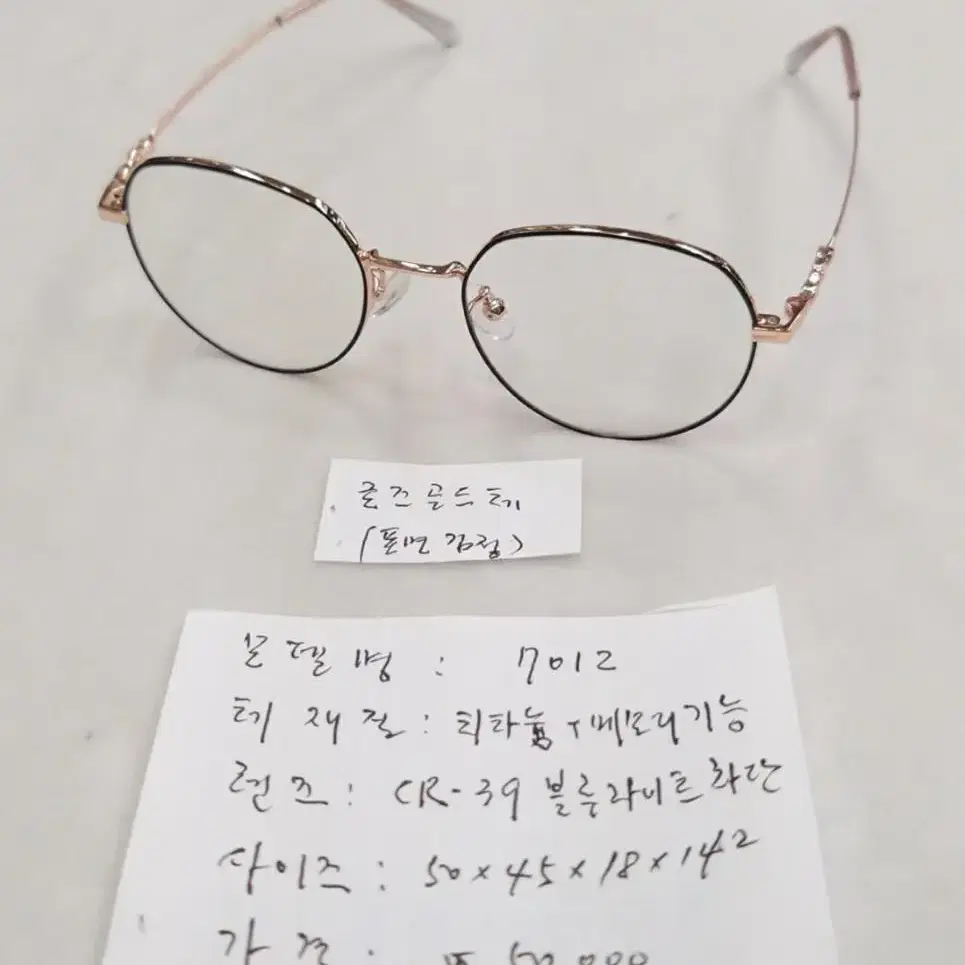 로즈골드테
(표면 검정)
모델명 : 7012
테 재질 : 티타늄+메모리기능
렌즈 : CR-39 블루라이트차단
사이즈 : 50×45×18×142
가격 : ₩ 50,000